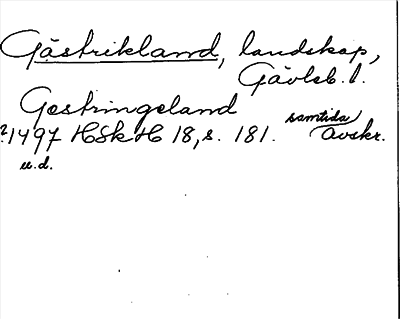 Gästrikland, landskap,
Gävleb. l.
Gestringeland
?1497 HSkH 18, s. 181. samtida avskr.
u.d.